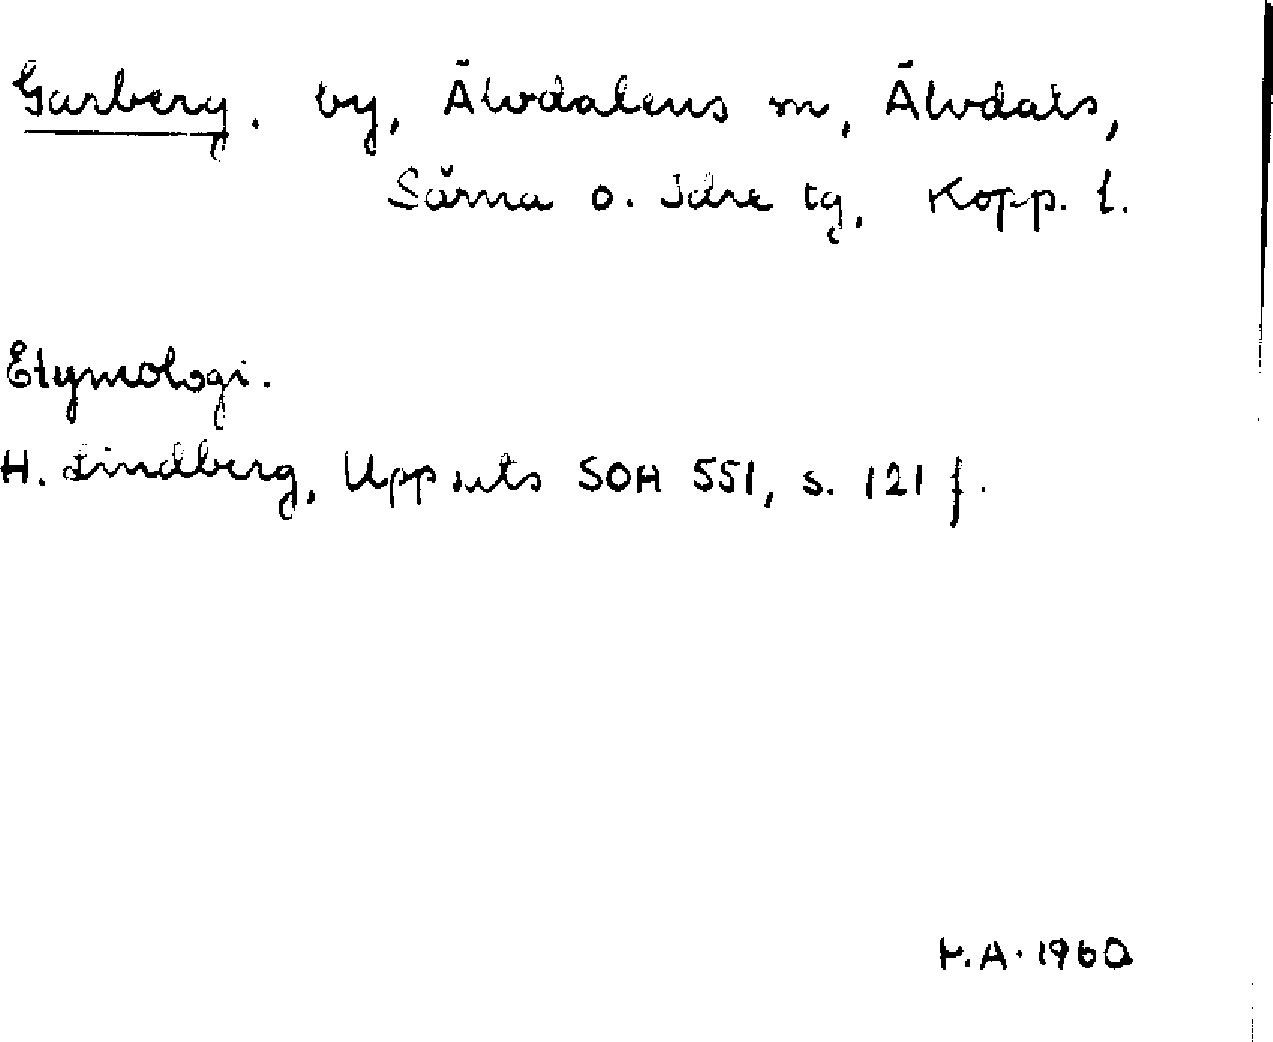 Garberg. by, Älvdalens sn, Älvdals,
Särna o. Idre tg, Kopp. l.
Etymologi.
H. Lindberg, Uppsats SOH 551, s. 121 f.
H.A. 1960